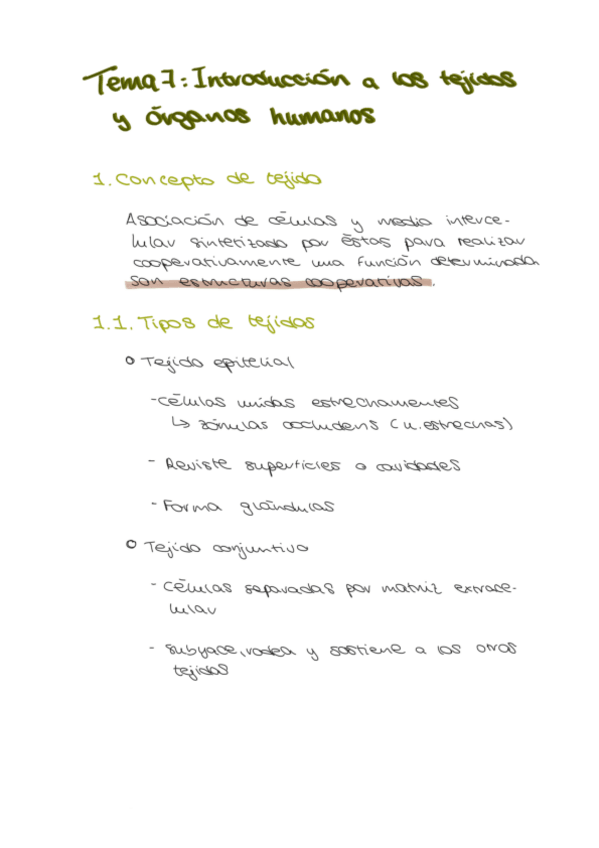 Tema 7: Introducción a los tejidos
y órganos humanos
1. Concepto de tejido
Asociación de células y medio interce-
lular sintetizado por éstas para realizar
cooperativamente una función determinada
son estructuras cooperativas.
1.1. Tipos de tejidos
o Tejido epitelial
- células unidas estrechamentes
↳ zónulas occludens (u. estrechas)
- Reviste superficies o cavidades
- Forma glándulas
o Tejido conjuntivo
- células separadas por matriz extrace-
lular
- subyace, rodea y sostiene a los otros
tejidos